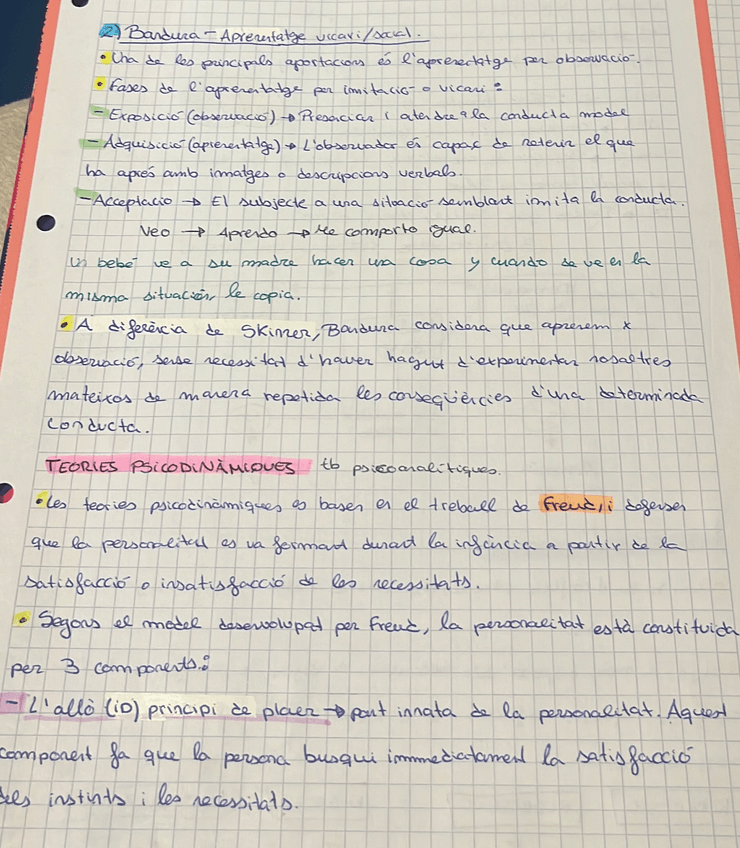 2) Bandura - Aprenentatge vicari/social.
• Una de les principals aportacions és l'aprenentatge per observació.
• Fases de l'aprenentatge per imitació o vicari:
- Exposició (observació) → Presenciar i atendre a la conducta model
- Adquisició (aprenentatge) → L'observador és capaç de retenir el que
ha après amb imatges o descripcions verbals.
- Acceptació → El subjecte a una situació semblant imita la conducta.
Veo → Aprendo → Me comporto igual.
Un bebé ve a su madre hacer una cosa y cuando se ve en la
misma situación, le copia.
• A diferència de Skinner, Bandura considera que aprenem x
observació, sense necessitat d'haver hagut d'experimentar nosaltres
mateixos de manera repetida les conseqüències d'una determinada
conducta.
TEORIES PSICODINÀMIQUES tb psicoanalítiques.
• Les teories psicodinàmiques es basen en el treball de Freud, i defensen
que la personalitat es va formant durant la infància a partir de la
satisfacció o insatisfacció de les necessitats.
• Segons el model desenvolupat per Freud, la personalitat està constituida
per 3 components:
- L'allò (iD) principi de plaer → part innata de la personalitat. Aquest
component fa que la persona busqui immmediatament la satisfacció
dels instints i les necessitats.